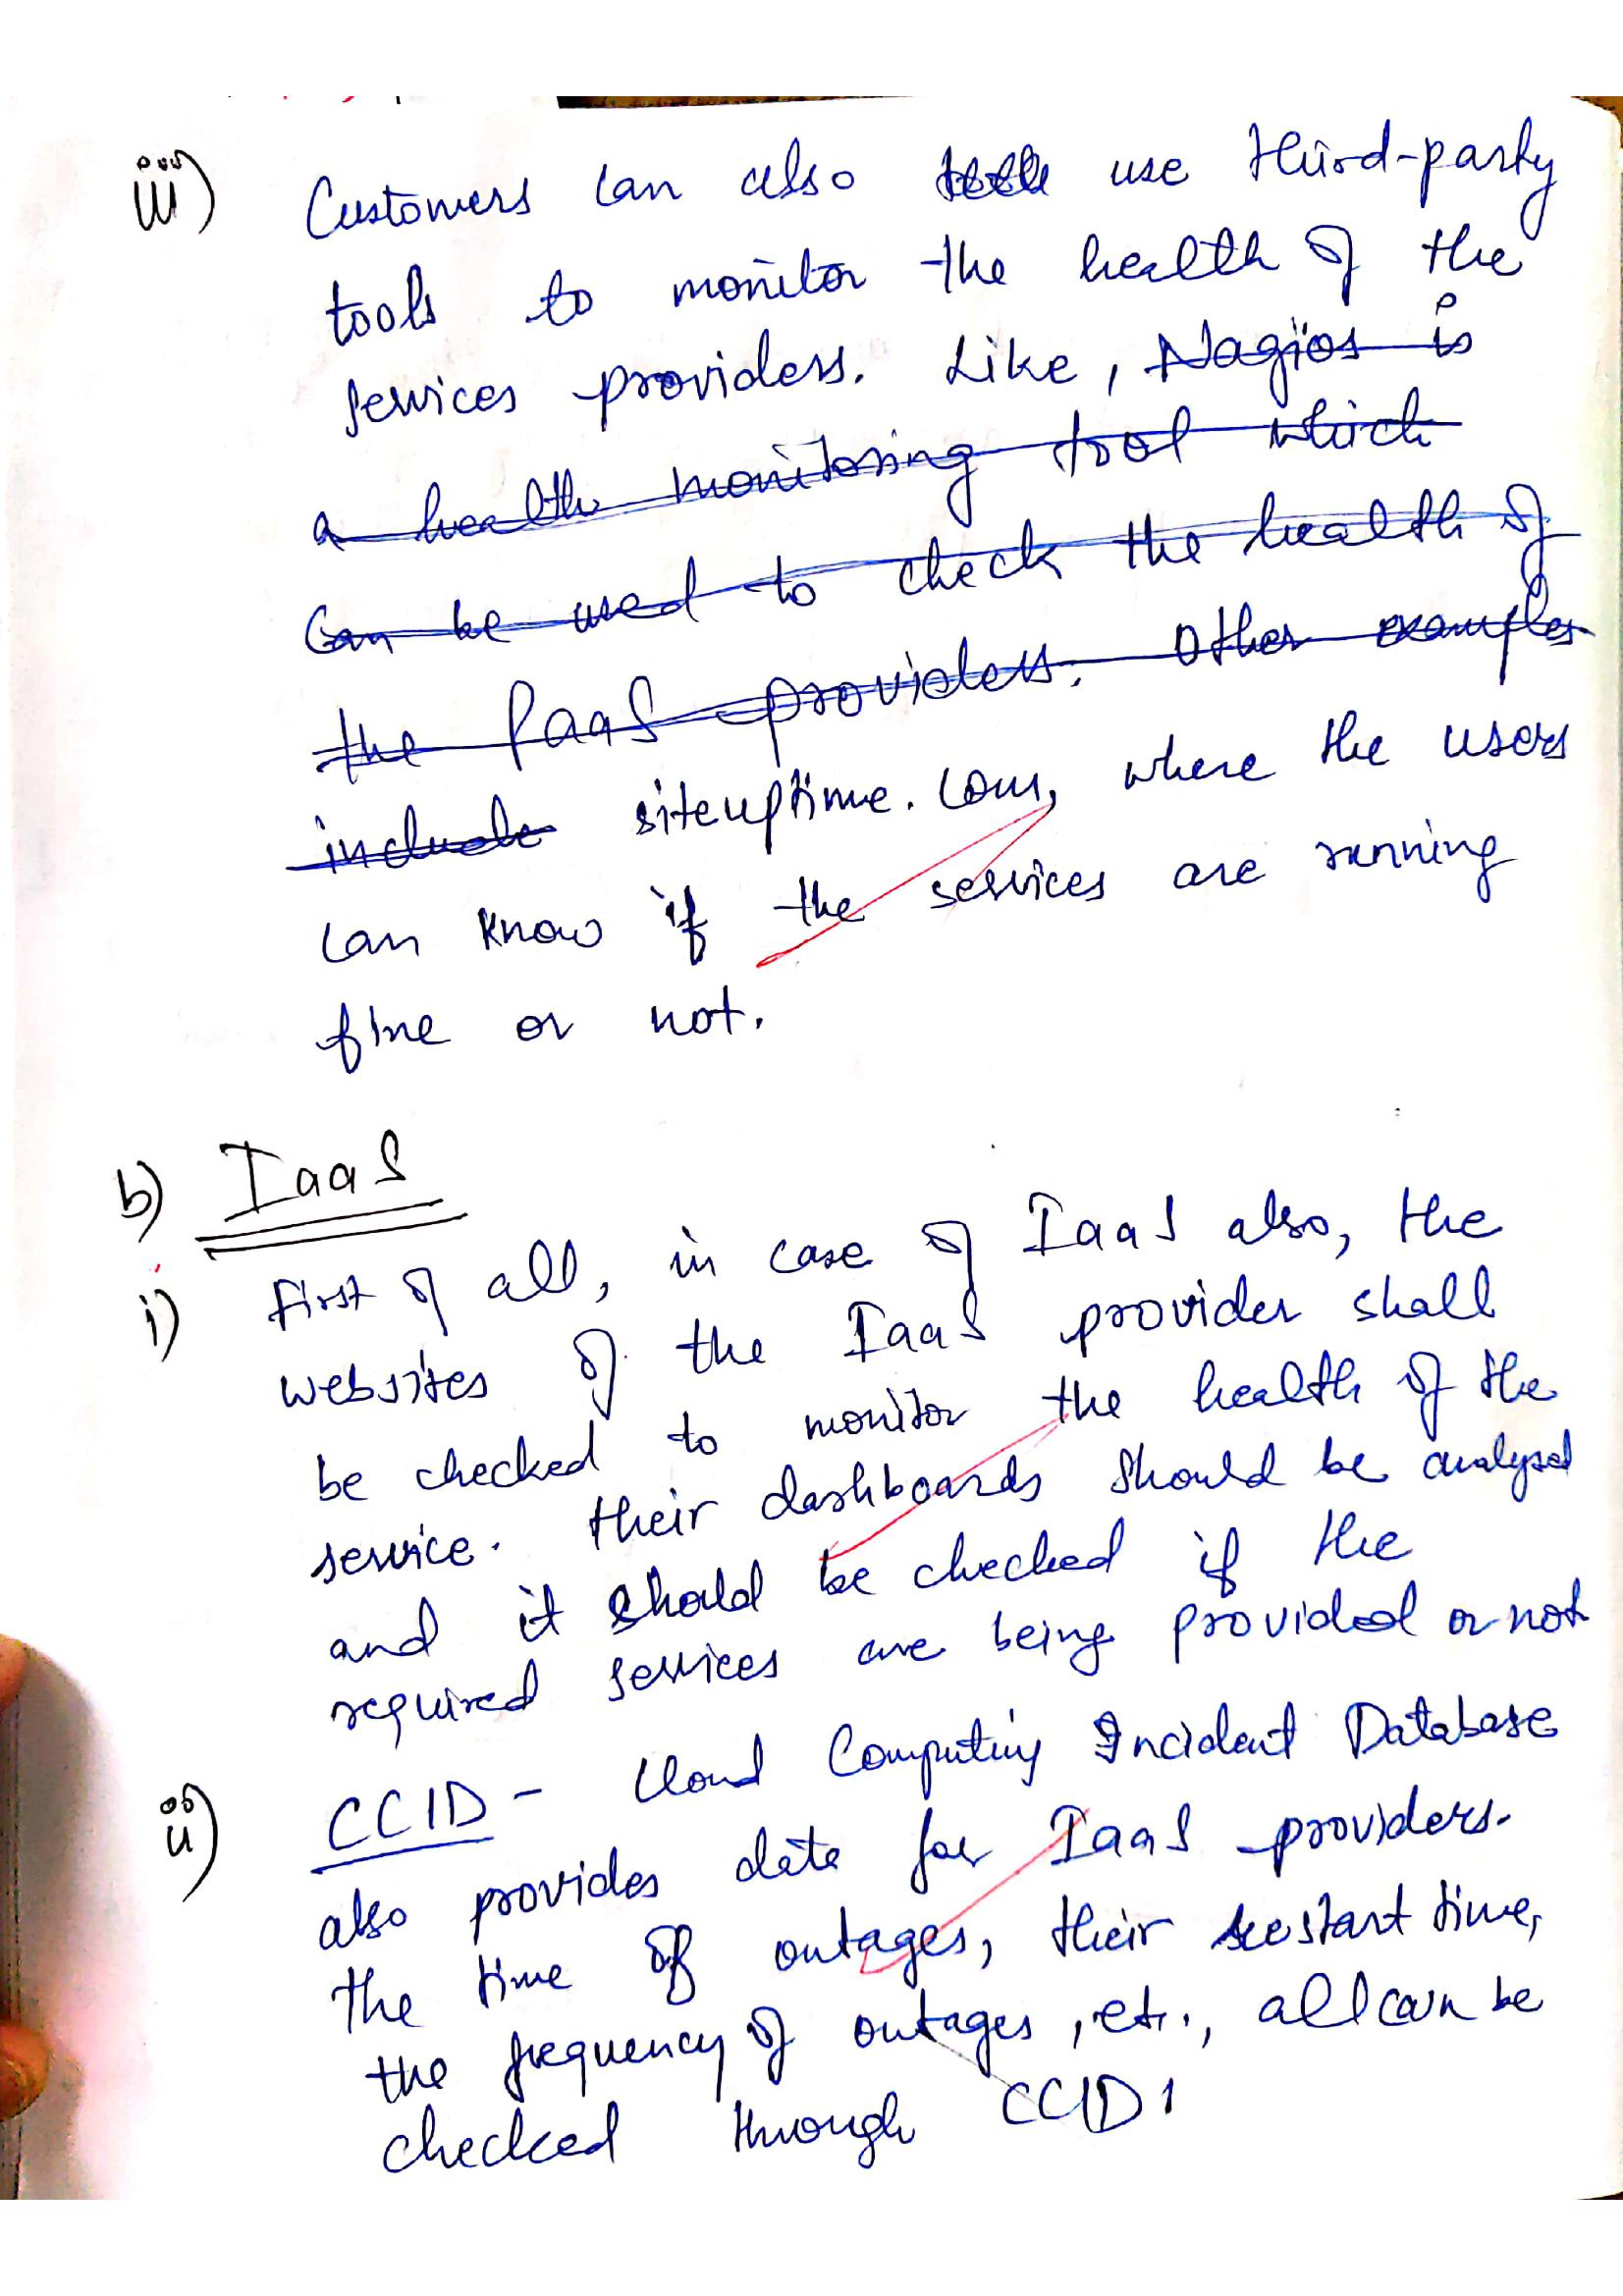 iii) Customers can also use third-party
tools to monitor the health of the
services providers. Like, Nagios is
a health monitoring tool which
can be used to check the health of
the PaaS providers. Other examples
include siteuptime.com, where the users
can know if the services are running
fine or not.
b) IaaS
i) First of all, in case of IaaS also, the
websites of the IaaS provider shall
be checked to monitor the health of the
service. Their dashboards should be analysed
and it should be checked if the
required services are being provided or not
ii) CCID - Cloud Computing Incident Database
also provides data for IaaS providers.
the time of outages, their restart time,
the frequency of outages, etc., all can be
checked through CCID.